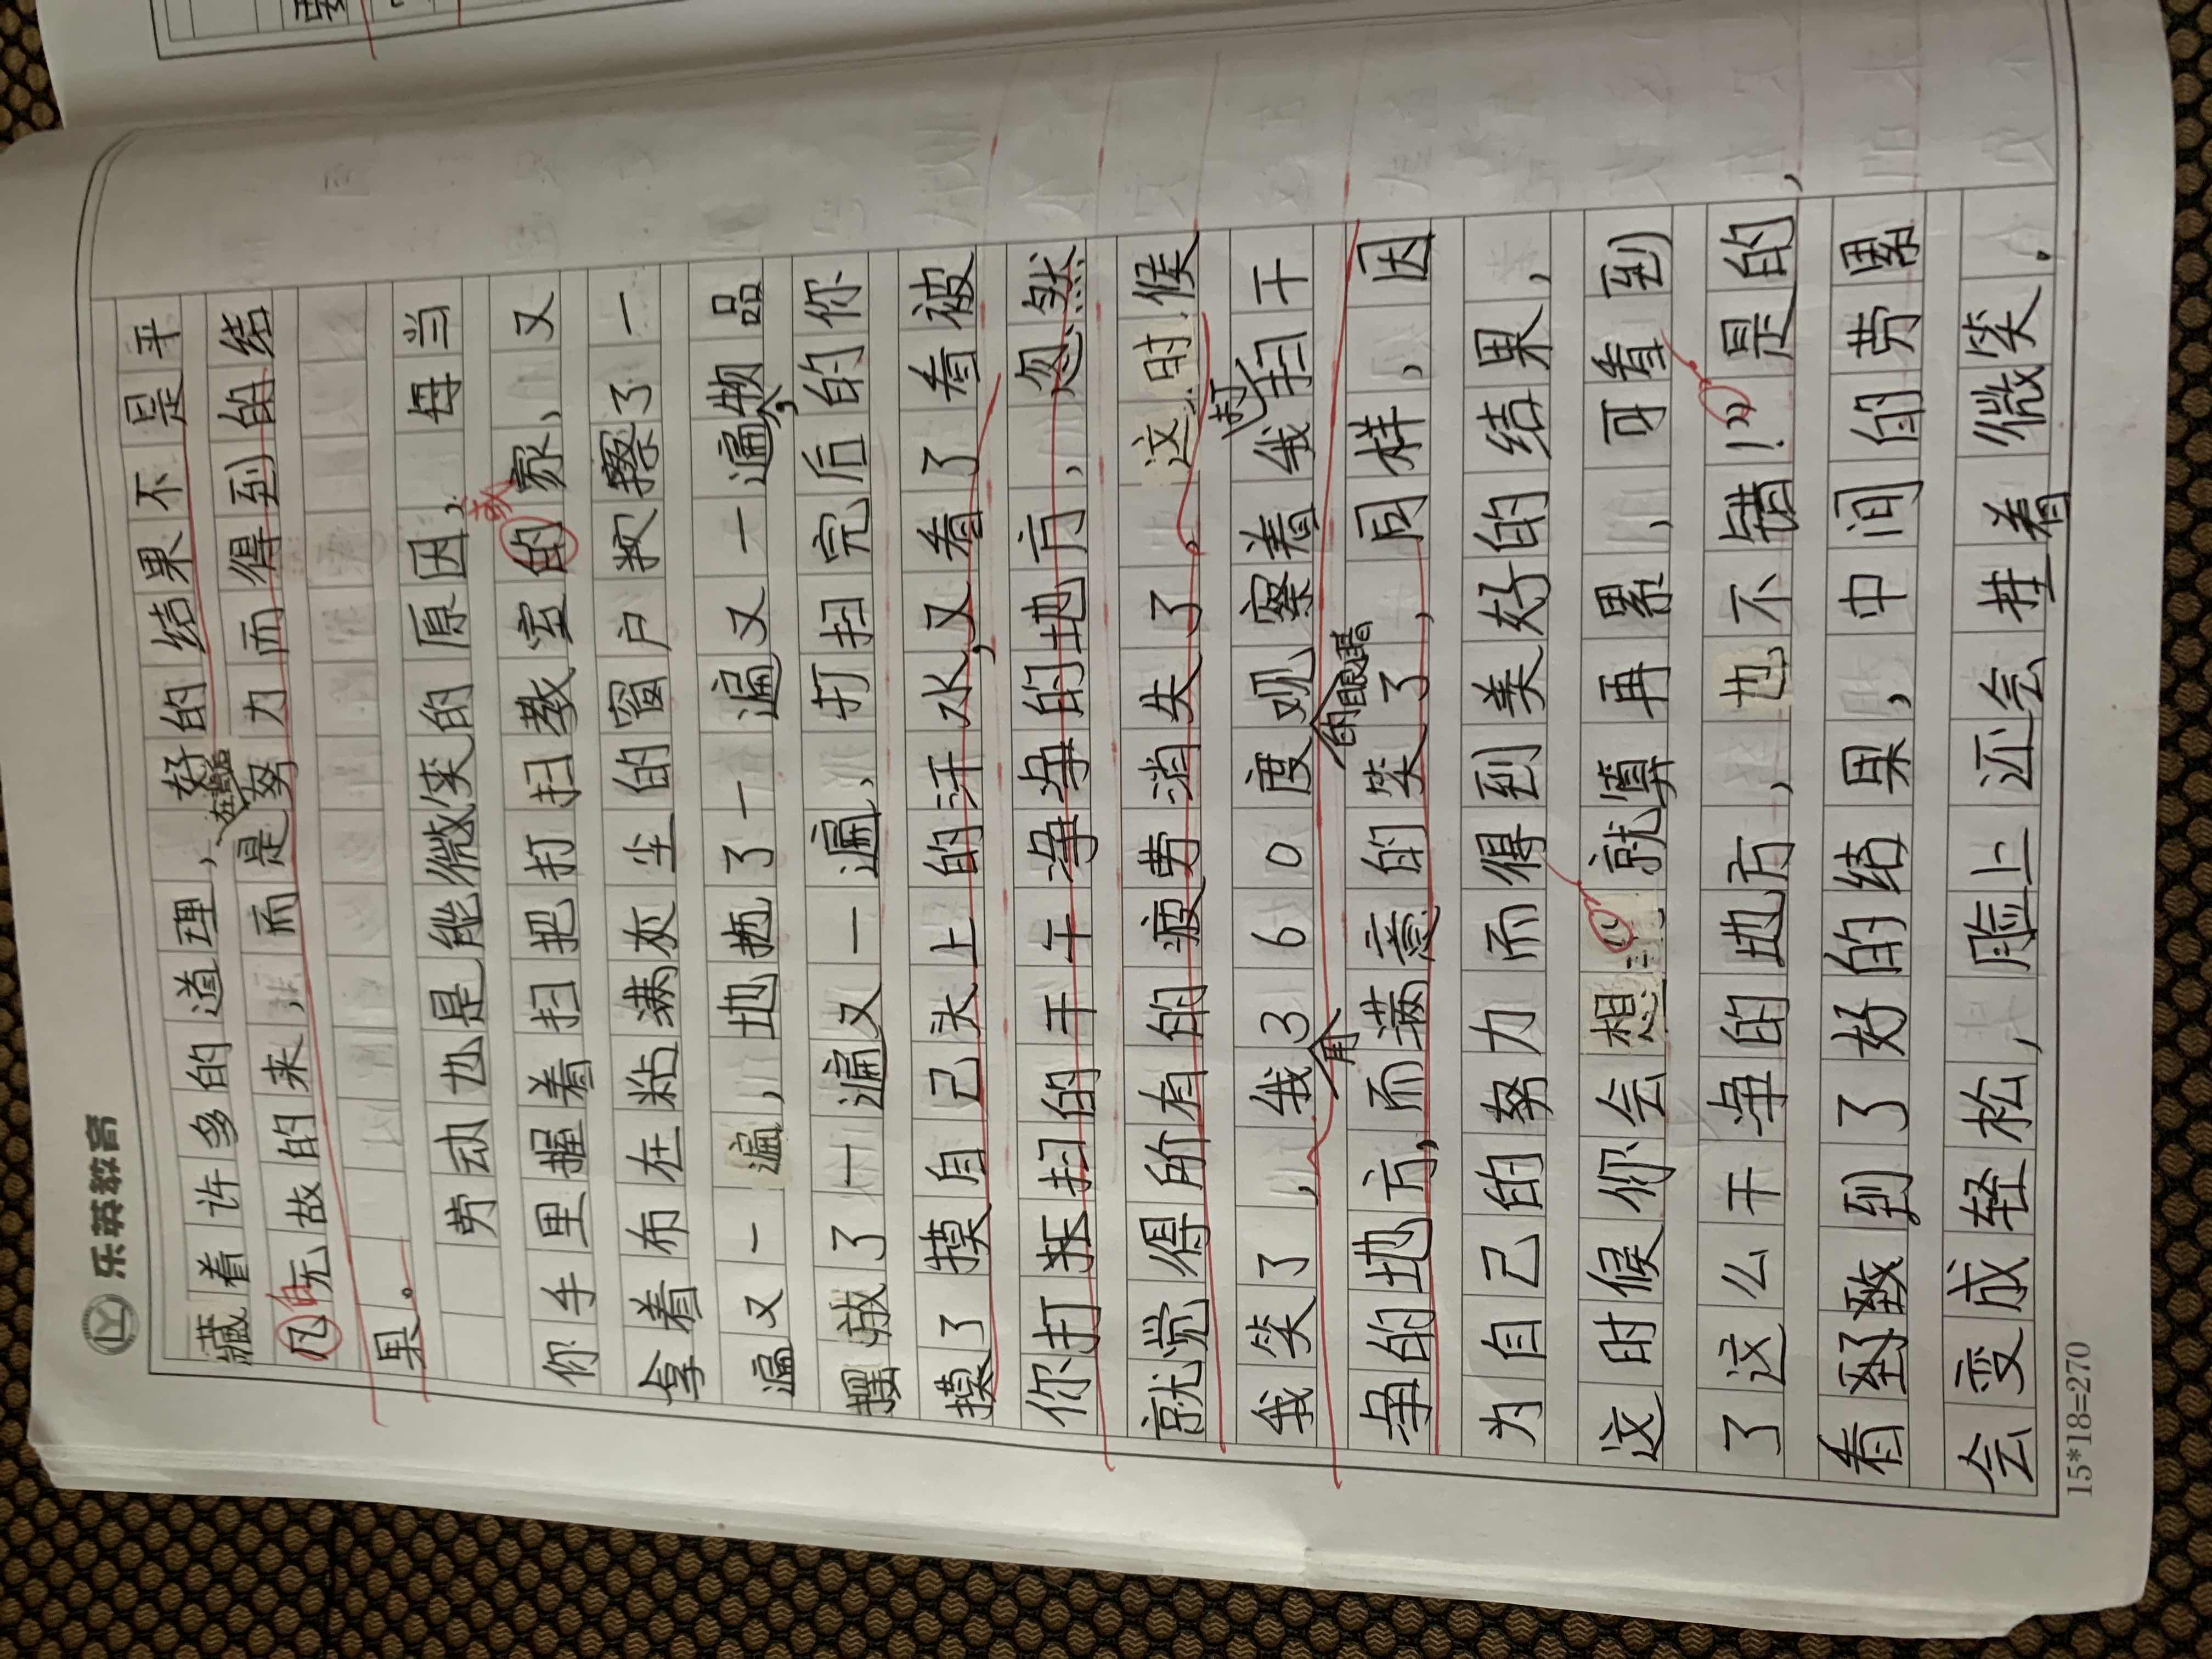 乐英教育
藏着许多的道理，好的结果不是平
凡白无故的来，而是在蓄努力而得到的结
果。
劳动也是能微笑的原因，每当
你手里握着扫把打扫教室的家、又
拿着布在粘满灰尘的窗户抆擦了一
遍又一遍，地拖了一遍又一遍，物品
摆放了一遍又一遍，打扫完后的你
摸了摸自己头上的汗水，又看了看被
你打扫的干干净净的地方，忽然
就觉得所有的疲劳消失了。这时候
我笑了，我用360度观察的眼睛着我打扫干
净的地方，而满意的笑了，同样，因
为自己的努力而得到美好的结果，
这时候你会想：“就算再累，可看到
了这么干净的地方，也不错！”是的，
看到了好的结果，中间的劳累
会变成轻松，脸上还会挂着微笑。
15*18=270